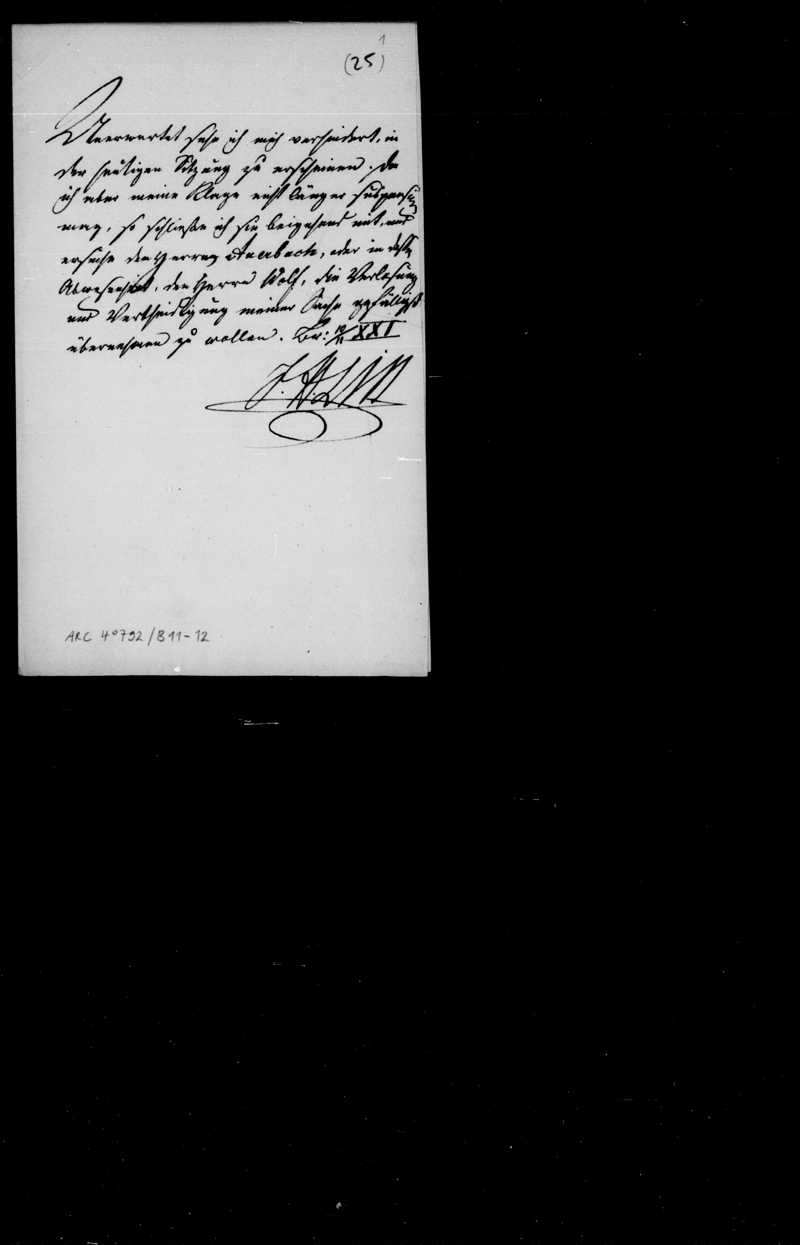 1
(25)
Unerwartet sehe ich mich verhindert, in
der heutigen Sitzung zu erscheinen. Da
ich aber meine Klage nicht länger suspensiv
mag, so schließe ich sie beigehend mit, und
ersuche den Herren Auerbach, oder in dessen
Abwesenheit, den Herrn Wolf, die Verlesung
und Vertheidigung meiner Sache gefälligst
übernehmen zu wollen. Br: XXI
ARC 4°792/B11-12